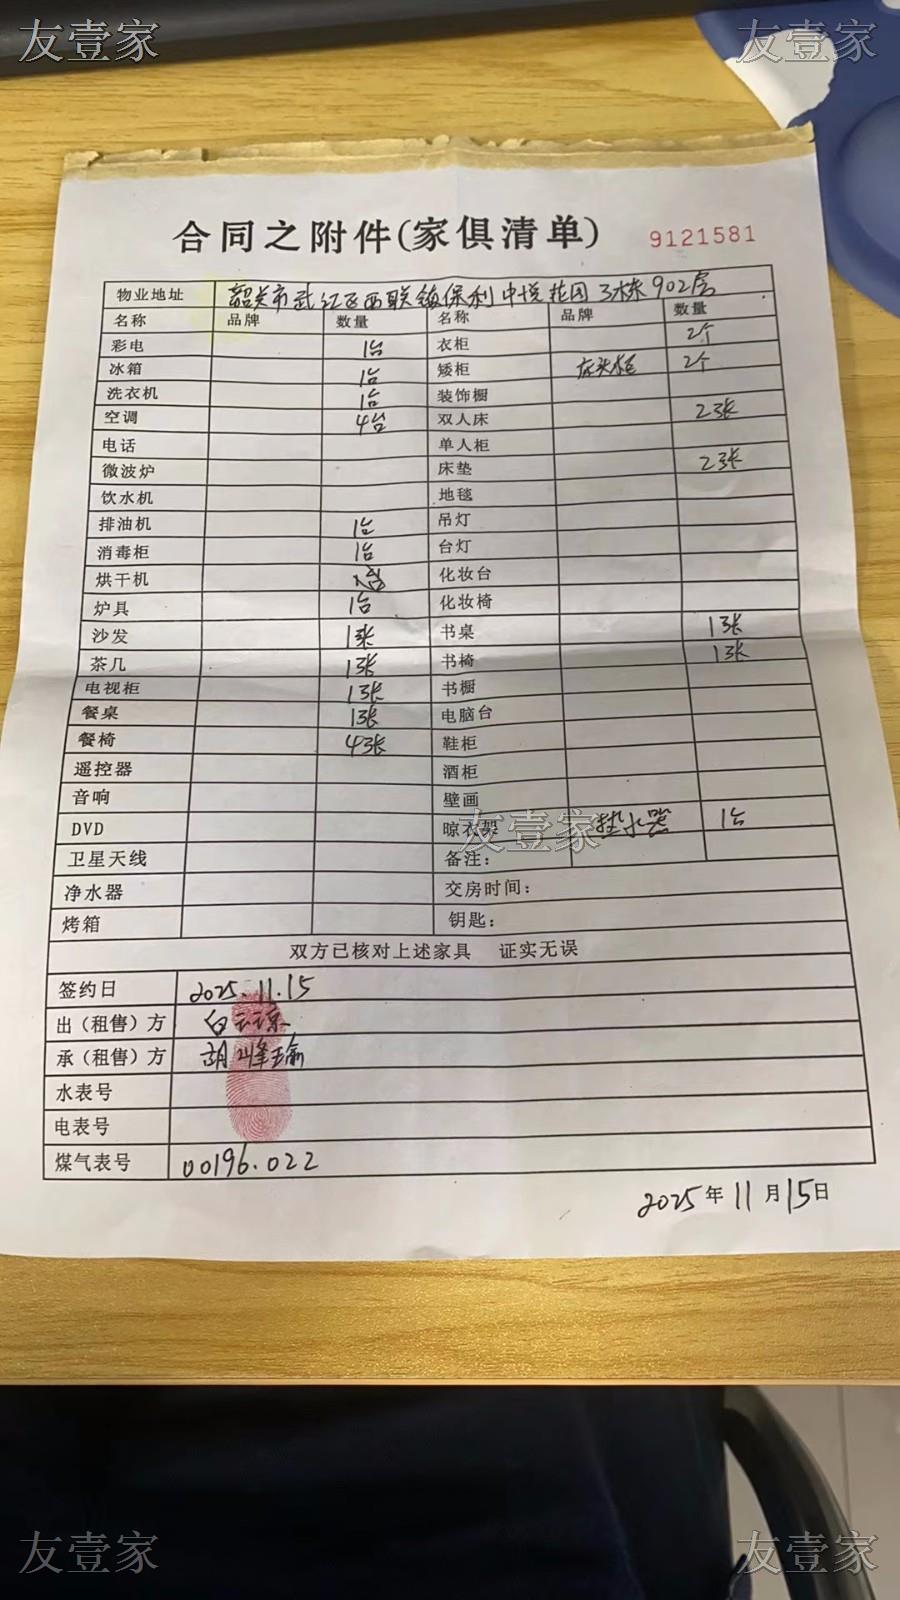 友壹家 友壹家
合同之附件(家俱清单) 9121581
物业地址 韶关市武江区西联镇保利中悦花园3栋902房
名称 品牌 数量 名称 品牌 数量
彩电 1台 衣柜 2个
冰箱 1台 矮柜 床头柜 2个
洗衣机 1台 装饰橱
空调 4台 双人床 2张
电话 单人柜
微波炉 床垫 2张
饮水机 地毯
排油机 1台 吊灯
消毒柜 1台 台灯
烘干机 化妆台
炉具 1台 化妆椅
沙发 1张 书桌 1张
茶几 1张 书椅 1张
电视柜 1张 书橱
餐桌 1张 电脑台
餐椅 4张 鞋柜
遥控器 酒柜
音响 壁画
DVD 晾衣架 热水器 1台
友壹家
卫星天线 备注：
净水器 交房时间：
烤箱 钥匙：
双方已核对上述家具 证实无误
签约日 2025.11.15
出（租售）方 白云琼
承（租售）方 胡峰瑜
水表号
电表号
煤气表号 00196.022
2025年11月15日
友壹家 友壹家